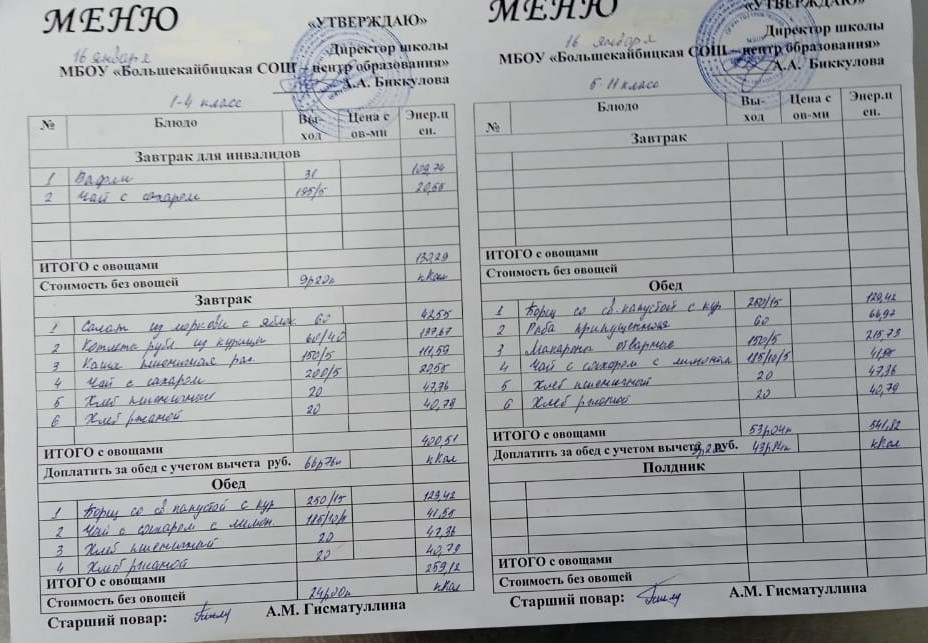 МЕНЮ
«УТВЕРЖДАЮ»
16 января
Директор школы
МБОУ «Большекайбицкая СОШ – центр образования»
А.А. Биккулова
1-4 класс
№ Блюдо Вы-ход Цена с ов-ми Энер.ц ен.
Завтрак для инвалидов
1 Вафли 31
2 Чай с сахаром 195/5 20,55
ИТОГО с овощами
Стоимость без овощей 9р20к кКал
Завтрак
1 Салат из моркови с яблок 60 42,55
2 Котлета руб из курицы 60/40 137,67
3 Каша пшеничная рас. 150/5 111,59
4 Чай с сахаром 200/5 20,55
5 Хлеб пшеничный 20 47,36
6 Хлеб ржаной 20 40,79
ИТОГО с овощами 400,51
Доплатить за обед с учетом вычета руб. 66р76к кКал
Обед
1 Борщ со св.капустой с кур 250/15 129,42
2 Чай с сахаром с лимон. 41,55
3 Хлеб пшеничный 20 47,36
4 Хлеб ржаной 20 40,79
ИТОГО с овощами 259,12
Стоимость без овощей 24р00к кКал
Старший повар: А.М. Гисматуллина
МЕНЮ
«УТВЕРЖДАЮ»
16 января
Директор школы
МБОУ «Большекайбицкая СОШ – центр образования»
А.А. Биккулова
5-11 класс
№ Блюдо Вы-ход Цена с ов-ми Энер.ц ен.
Завтрак
ИТОГО с овощами
Стоимость без овощей
Обед
1 Борщ со св.капустой с кур 250/15 129,42
2 Рыба припущенная 60 66,92
3 Макароны отварные 150/5 215,78
4 Чай с сахаром с лимоном 41,55
5 Хлеб пшеничный 20 47,36
6 Хлеб ржаной 20 40,79
ИТОГО с овощами 53р04к 541,82
Доплатить за обед с учетом вычета руб. 43р84к кКал
Полдник
ИТОГО с овощами
Стоимость без овощей
Старший повар: А.М. Гисматуллина